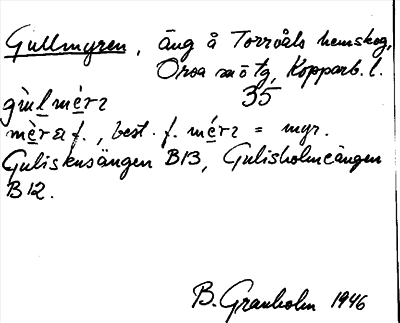 Gullmyren, äng å Torrvåls hemskog,
Orsa sn ö tg, Kopparb. l.
35
gùlmérz
mèrzı f., best. f. mérz = myr.
Guliskusängen B13, Gulisholmeängen
B12.
B. Granholm 1946